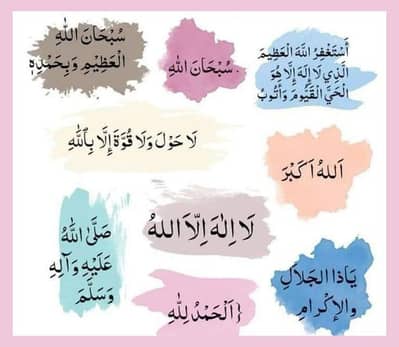 أَسْتَغْفِرُ اللهَ الْعَظِيْمَ
الَّذِي لَا إِلَهَ إِلَّا هُوَ
الْحَيَّ الْقَيُّومَ وَأَتُوبُ
سُبْحَانَ اللهِ
سُبْحَانَ اللهِ
الْعَظِيْمِ وَبِحَمْدِهِ
لَا حَوْلَ وَلَا قُوَّةَ إِلَّا بِاللهِ
اَللهُ اَكْبَرَ
لَا اِلٰهَ اِلَّا اللهُ
صَلَّىٰ اللهُ
عَلَيْهِ وَآلِهِ
وَسَلَّمَ
يَاذَا الْجَلَالِ
وَالْإِكْرَامِ
{ اَلْحَمْدُ لِلّٰهِ